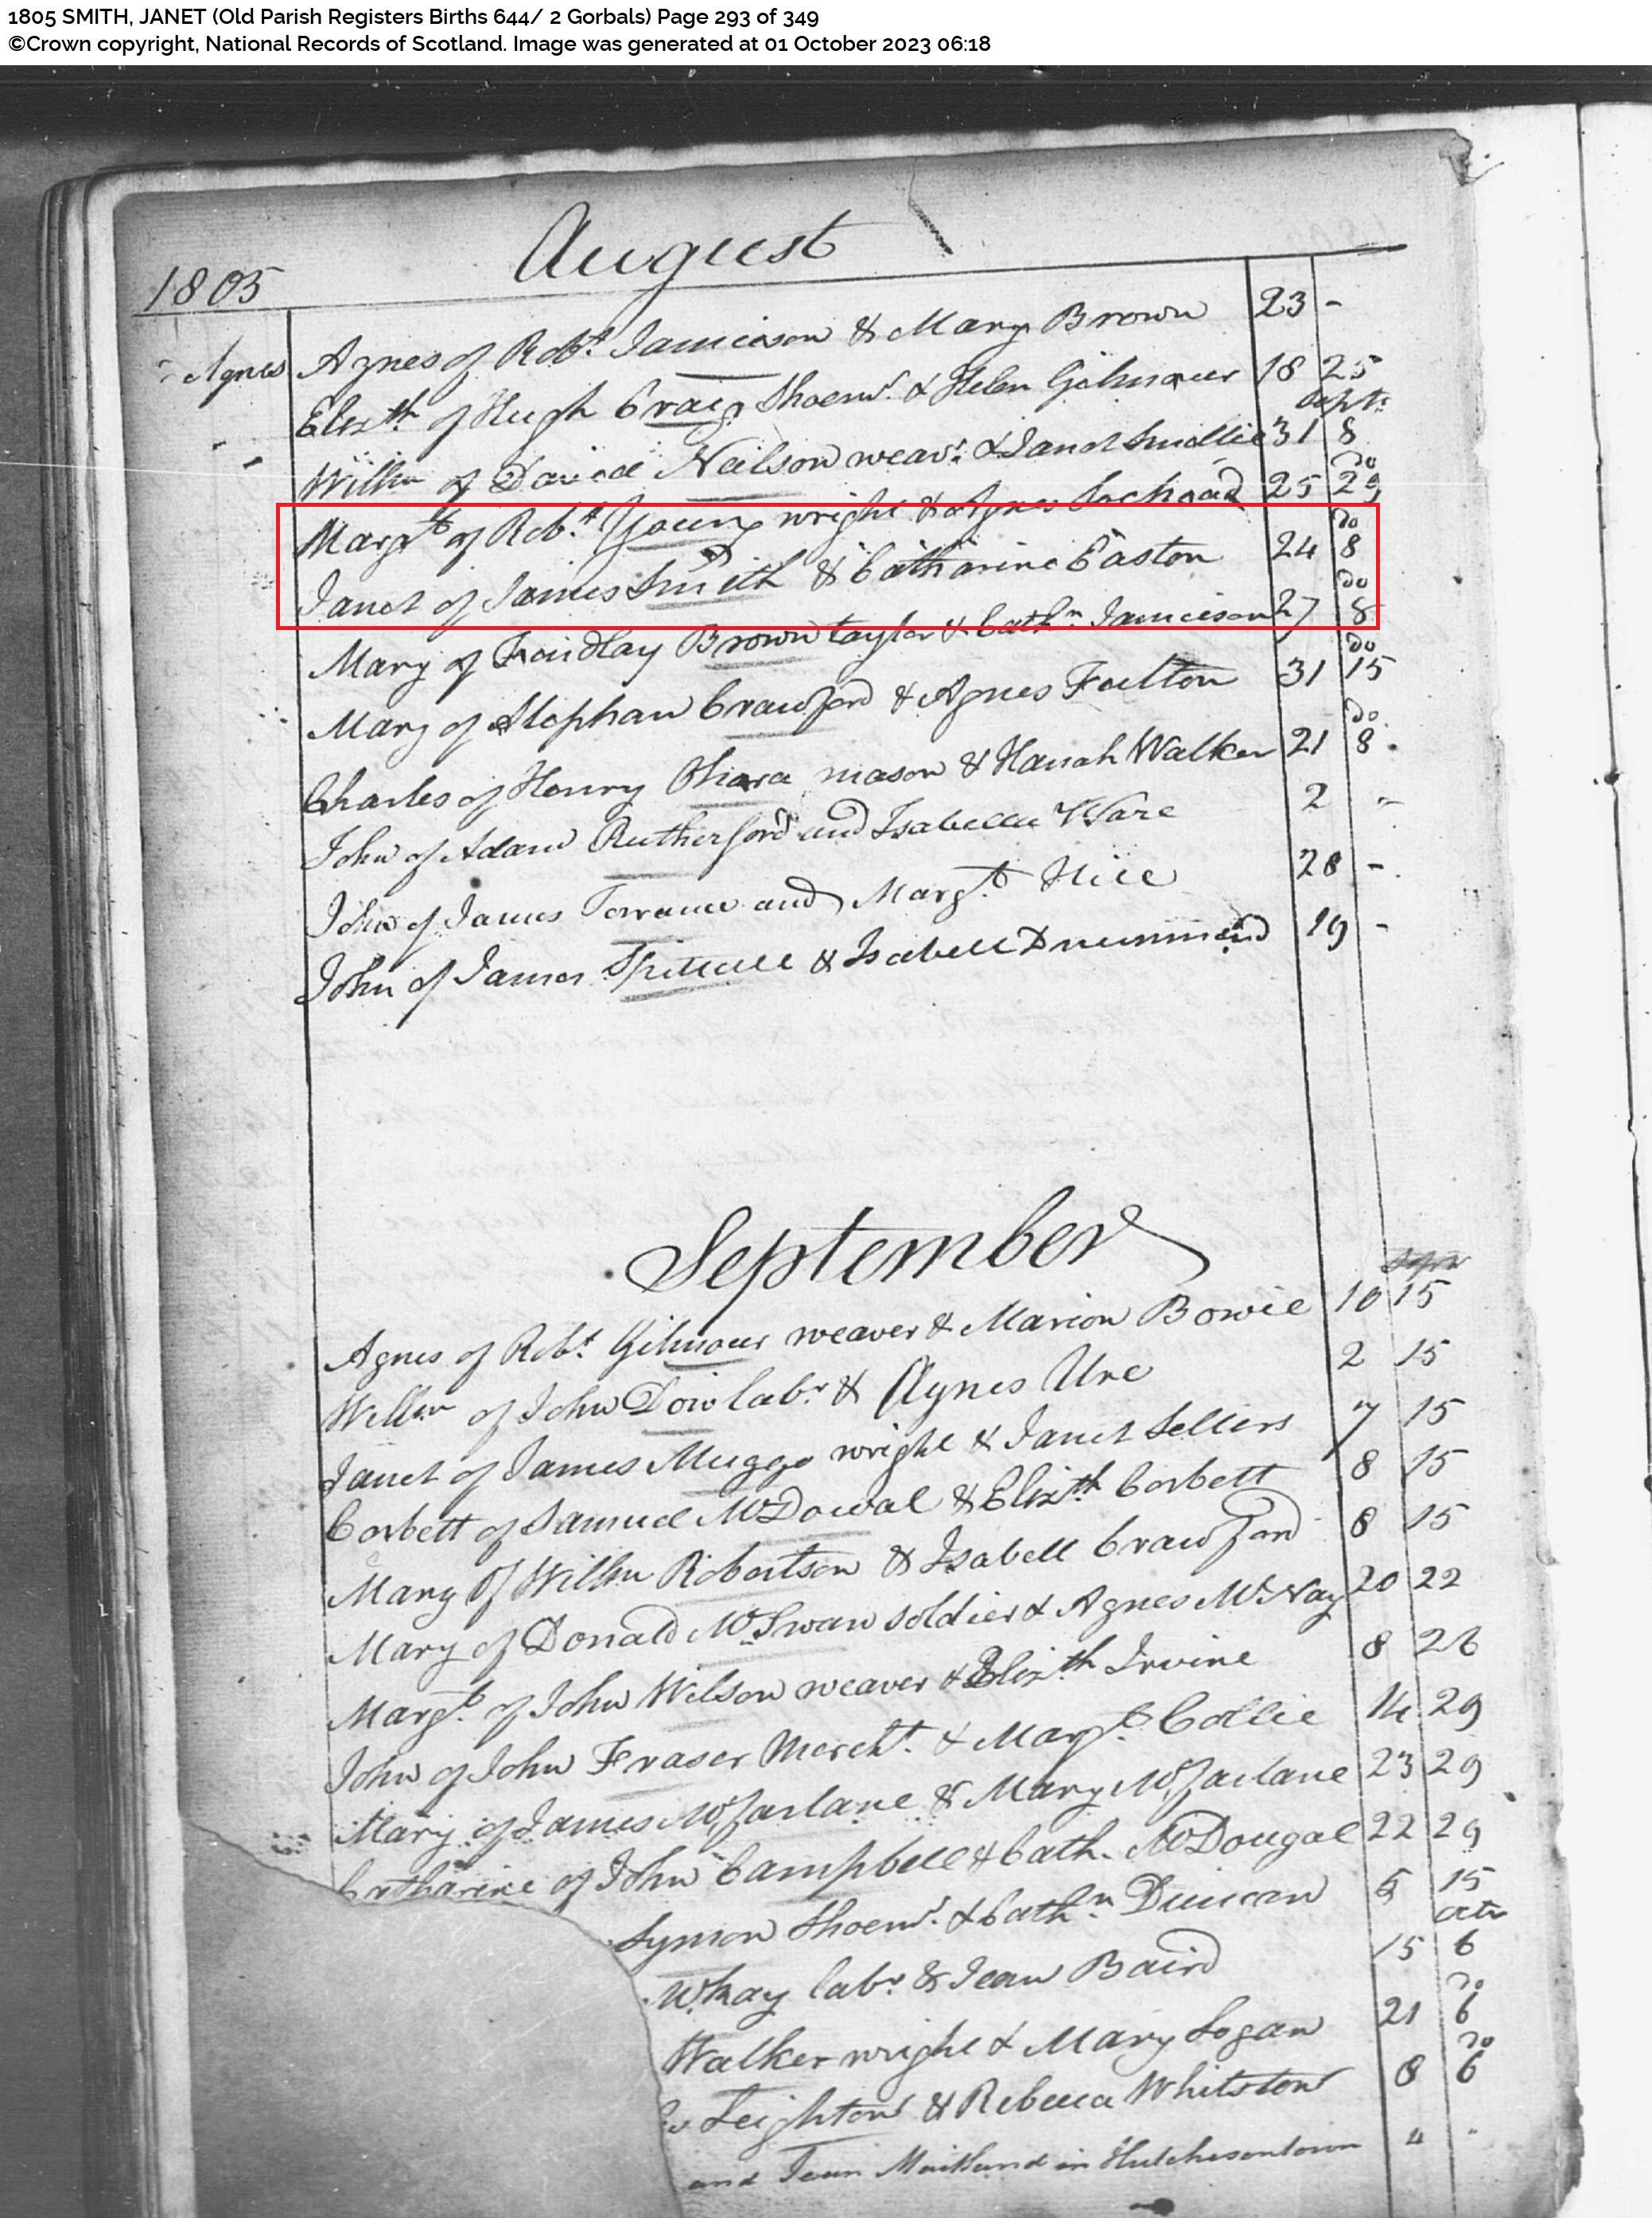 1805 SMITH, JANET (Old Parish Registers Births 644/ 2 Gorbals) Page 293 of 349
©Crown copyright, National Records of Scotland. Image was generated at 01 October 2023 06:18
August
1805
Agnes Agnes of Robt. Jamieson & Mary Brown 23 -
Elizth. of Hugh Craig Shoemr. & Helen Gilmour 18 25
Septr.
Willm of David Neilson weavr. & Janet Smellie 31 8
do
Margt. of Robt. Young wright & Agnes Lochead 25 29
do
Janet of James Smith & Catharine Easton 24 8
do
Mary of Faindlay Brown taylor & Cathn. Jamieson 27 8
do
Mary of Stephan Crawford & Agnes Fulton 31 15
do
Charles of Henry Ohara mason & Hanah Walker 21 8
John of Adam Rutherford and Isabella Ware 2 -
John of James Torrance and Margt. Hill 28 -
John of James Spittall & Isabell Drummond 19 -
September
Agnes of Robt. Gilmour weaver & Marion Bowie 10 15
Willm of John Dow labr. & Agnes Ure 2 15
Janet of James Muggo wright & Janet Sellers 7 15
Corbett of Samuel McDowal & Elizth Corbett 8 15
Mary of Willm Robertson & Isabell Crawford 8 15
Mary of Donald McSwan soldier & Agnes McNay 20 22
Margt. of John Wilson weaver & Elizth Irvine 8 26
John of John Fraser Mercht. & Margt. Collie 14 29
Mary of James McFarlane & Mary McFarlane 23 29
Catharine of John Campbell & Cath. McDougal 22 29
Symon Shoemr. & Cathn Duncan 5 15
octr
McKay labr & Jean Baird 15 6
do
Walker wright & Mary Logan 21 6
do
Leighton & Rebecca Whitston 8 6
and Jean Maitland in Hutchesontown " "